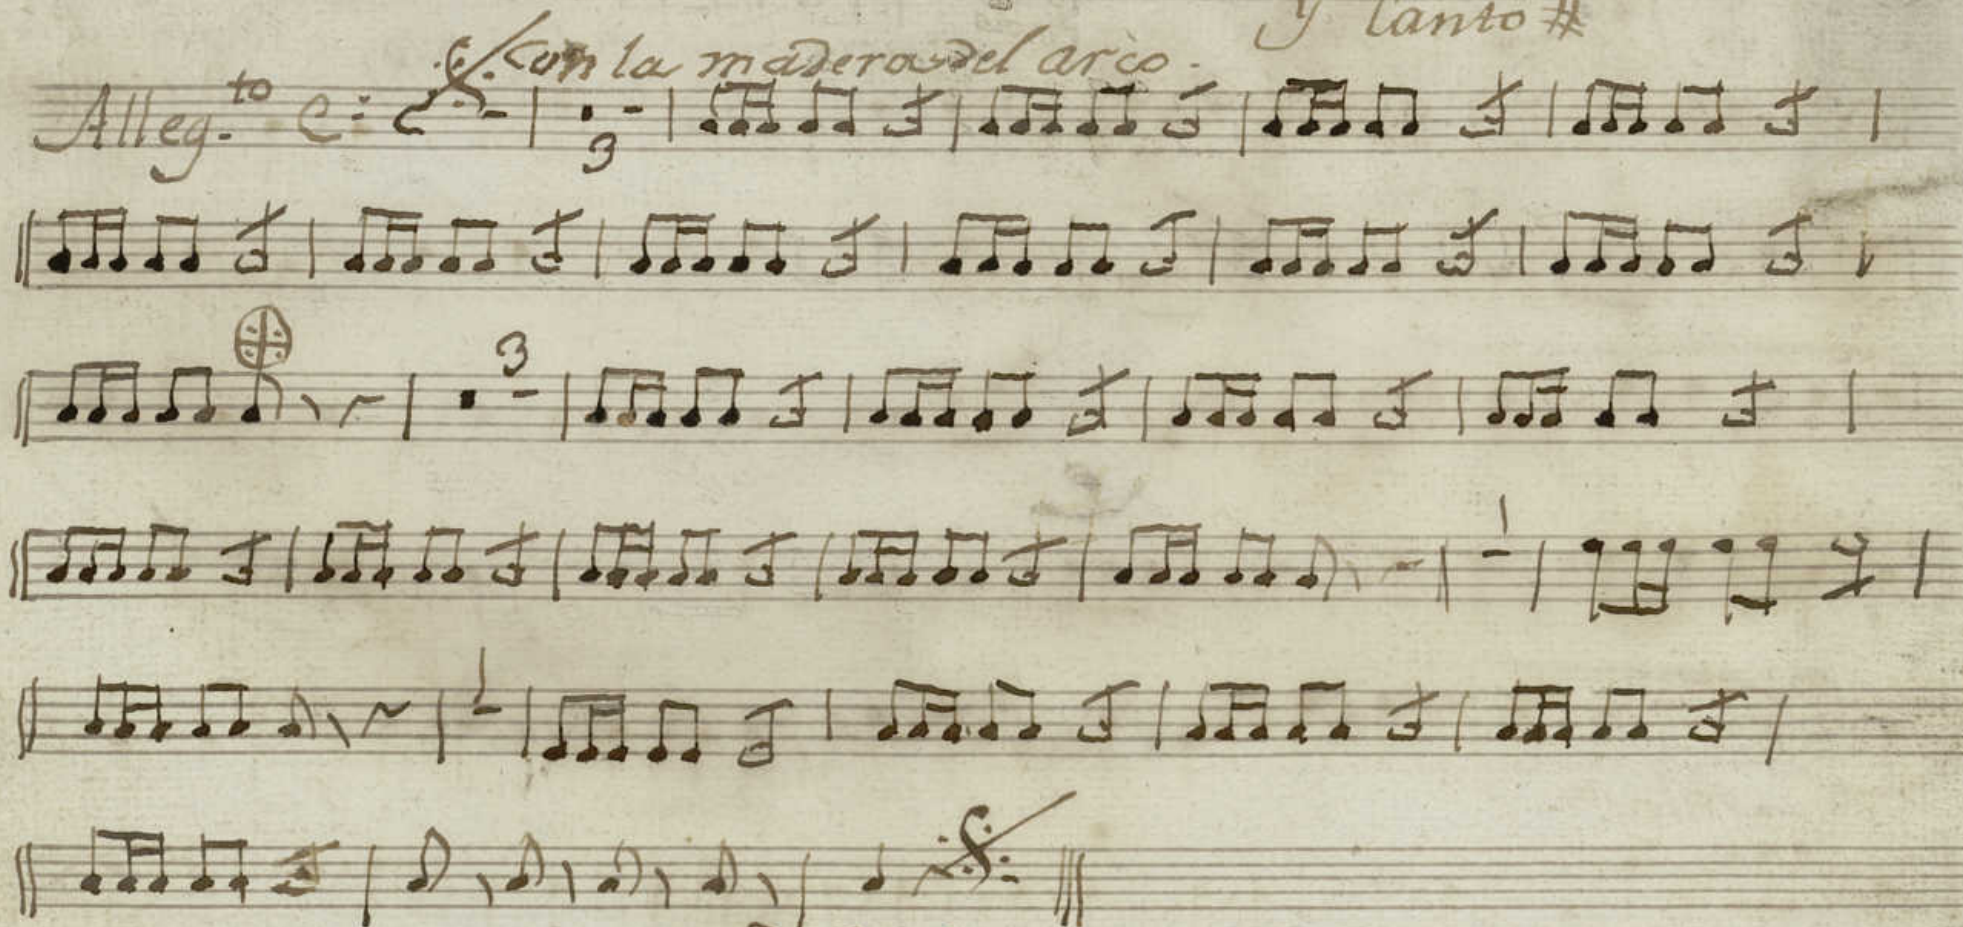 y tanto #
Con la madera del arco.
Alleg.to C
3
3